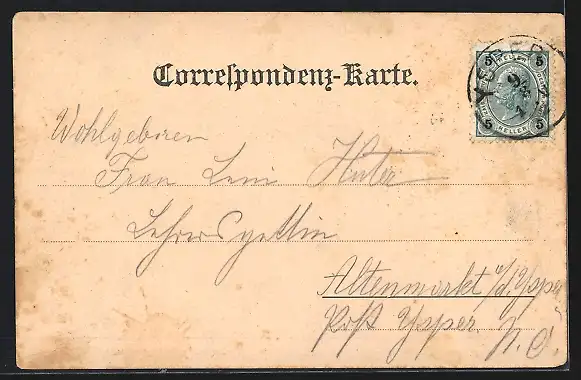 Correspondenz-Karte.
5 HELLER 5
5 HELLER 5
Wohlgeboren
Frau Leni Huter
Lehrersgattin
Altenmarkt a/d. Ysper
Post Ysper. N. Ö.